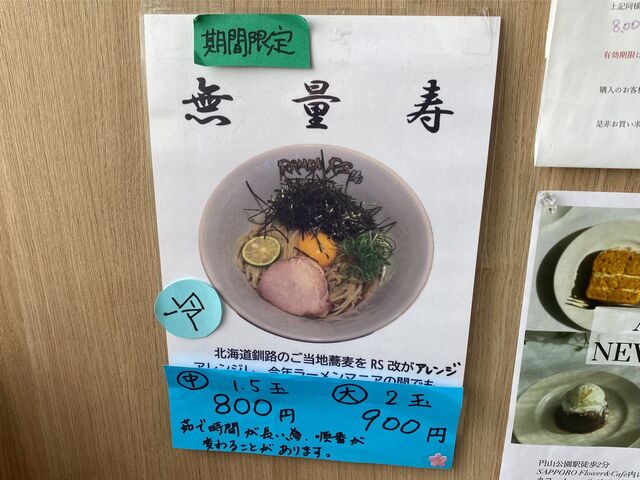 期間限定
無量寿
RAMEN RS改
冷
北海道釧路のご当地蕎麦を RS 改がアレンジ
アレンジし、今年ラーメンマニアの間でも
中 1.5玉
800円
大 2玉
900円
茹で時間が長い為、順番が
変わることがあります。
上記同様
8,00
有効期限は
購入のお客様
是非お買い求
NEW
円山公園駅徒歩2分
SAPPORO Flower&Cafe内に